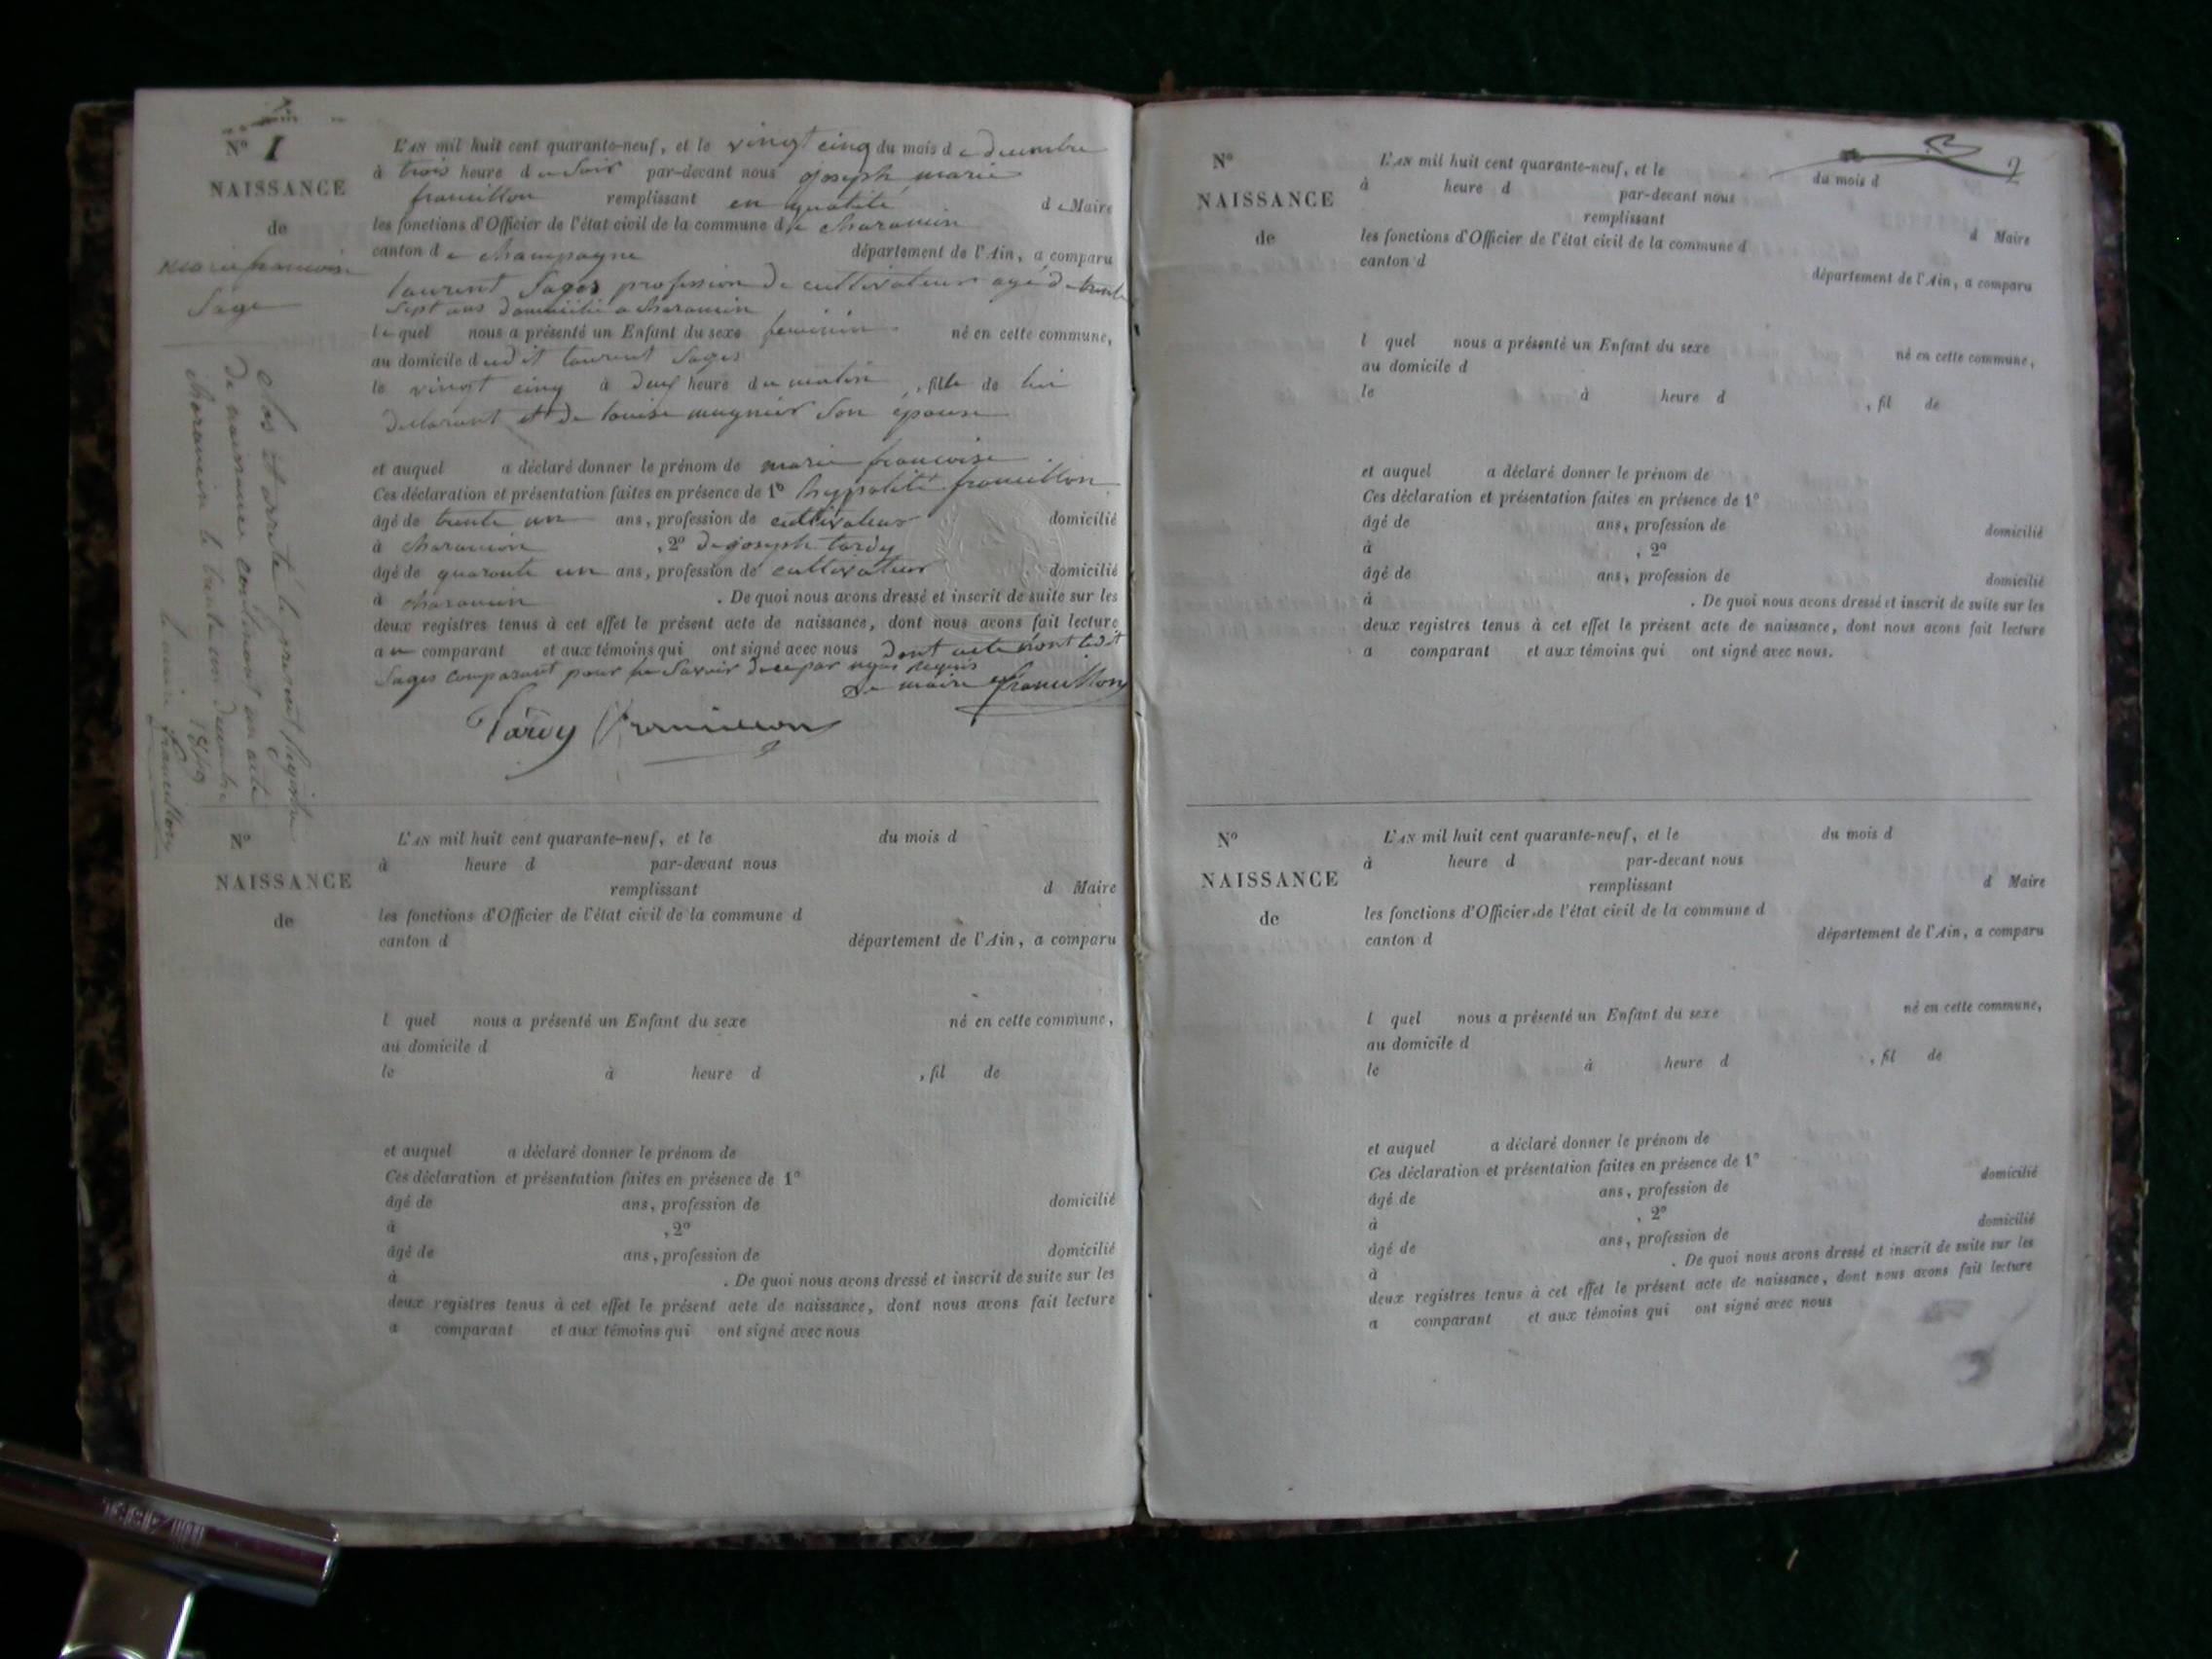 N° 1
NAISSANCE
de
marie francoise
Sage
L'AN mil huit cent quarante-neuf, et le vingt cinq du mois de decembre
à trois heure du soir par-devant nous joseph marie
francillon remplissant en qualité de Maire
les fonctions d'Officier de l'état civil de la commune de charancin
canton de champagne département de l'Ain, a comparu
laurent Sages profession de cultivateur agé de trente
Sept ans domicilié a charancin
lequel nous a présenté un Enfant du sexe feminin né en cette commune,
au domicile dudit laurent Sages
le vingt cinq à deux heure du matin, fille de lui
declarant et de louise mugnier Son épouse
et auquel a déclaré donner le prénom de marie francoise
Ces déclaration et présentation faites en présence de 1° hyppolite francillon
âgé de trente un ans, profession de cultivateur domicilié
à charancin, 2° de joseph tardy
âgé de quarante un ans, profession de cultivateur domicilié
à charancin. De quoi nous avons dressé et inscrit de suite sur les
deux registres tenus à cet effet le présent acte de naissance, dont nous avons fait lecture
au comparant et aux témoins qui ont signé avec nous dont acte non ledit
Sages comparant pour ne Savoir de ce par nous requis
Le maire francillon
Tardy francillon
Clos et arrêté le present registre
de naissance contenant un acte
charancin le trente un decembre
1849
le maire francillon
N°
NAISSANCE
de
L'AN mil huit cent quarante-neuf, et le du mois d
à heure d par-devant nous
remplissant d Maire
les fonctions d'Officier de l'état civil de la commune d
canton d département de l'Ain, a comparu
l quel nous a présenté un Enfant du sexe né en cette commune,
au domicile d
le à heure d , fil de
et auquel a déclaré donner le prénom de
Ces déclaration et présentation faites en présence de 1°
âgé de ans, profession de domicilié
à , 2°
âgé de ans, profession de domicilié
à . De quoi nous avons dressé et inscrit de suite sur les
deux registres tenus à cet effet le présent acte de naissance, dont nous avons fait lecture
a comparant et aux témoins qui ont signé avec nous
2
N°
NAISSANCE
de
L'AN mil huit cent quarante-neuf, et le du mois d
à heure d par-devant nous
remplissant d Maire
les fonctions d'Officier de l'état civil de la commune d
canton d département de l'Ain, a comparu
l quel nous a présenté un Enfant du sexe né en cette commune,
au domicile d
le à heure d , fil de
et auquel a déclaré donner le prénom de
Ces déclaration et présentation faites en présence de 1°
âgé de ans, profession de domicilié
à , 2°
âgé de ans, profession de domicilié
à . De quoi nous avons dressé et inscrit de suite sur les
deux registres tenus à cet effet le présent acte de naissance, dont nous avons fait lecture
a comparant et aux témoins qui ont signé avec nous.
N°
NAISSANCE
de
L'AN mil huit cent quarante-neuf, et le du mois d
à heure d par-devant nous
remplissant d Maire
les fonctions d'Officier de l'état civil de la commune d
canton d département de l'Ain, a comparu
l quel nous a présenté un Enfant du sexe né en cette commune,
au domicile d
le à heure d , fil de
et auquel a déclaré donner le prénom de
Ces déclaration et présentation faites en présence de 1°
âgé de ans, profession de domicilié
à , 2°
âgé de ans, profession de domicilié
à . De quoi nous avons dressé et inscrit de suite sur les
deux registres tenus à cet effet le présent acte de naissance, dont nous avons fait lecture
a comparant et aux témoins qui ont signé avec nous